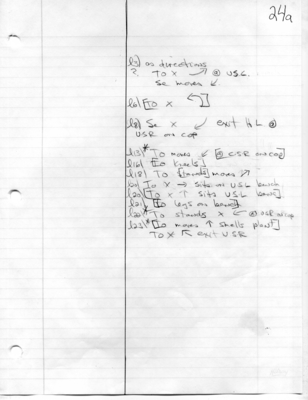 24a
as directions
? To X ↗ @ USL.
Se moves ↙
l6) [To X ↰]
l8) Se X ↙ exit HL @
USR on cop
l13)* To moves ↙ [@ CSR on cop]
l16) [To kneels]
l18) To [stands] moves ↗
l20) To X → sits on USL bench
l20) [To X ↑ sits USL bench]
l21) * [To legs on bench]
l22) * To stands X ↙ @
l23) * [To moves ↑ smells plant]
To X ↖ exit USR